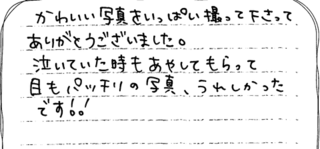 かわいい写真をいっぱい撮って下さって
ありがとうございました。
泣いていた時もあやしてもらって
目もパッチリの写真、うれしかった
です!!